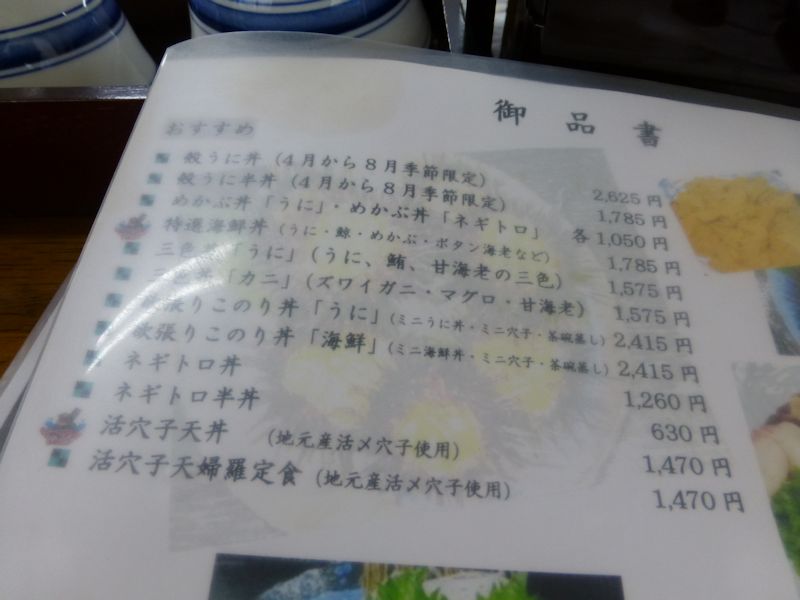 御品書
おすすめ
殻うに丼（4月から8月季節限定） 2,625円
殻うに半丼（4月から8月季節限定） 1,785円
めかぶ丼「うに」・めかぶ丼「ネギトロ」 各1,050円
特選海鮮丼（うに・鯨・めかぶ・ボタン海老など） 1,785円
三色丼「うに」（うに、鮪、甘海老の三色） 1,575円
三色丼「カニ」（ズワイガニ・マグロ・甘海老） 1,575円
欲張りこのり丼「うに」（ミニうに丼・ミニ穴子・茶碗蒸し） 2,415円
欲張りこのり丼「海鮮」（ミニ海鮮丼・ミニ穴子・茶碗蒸し） 2,415円
ネギトロ丼 1,260円
ネギトロ半丼 630円
活穴子天丼 （地元産活〆穴子使用） 1,470円
活穴子天婦羅定食（地元産活〆穴子使用） 1,470円